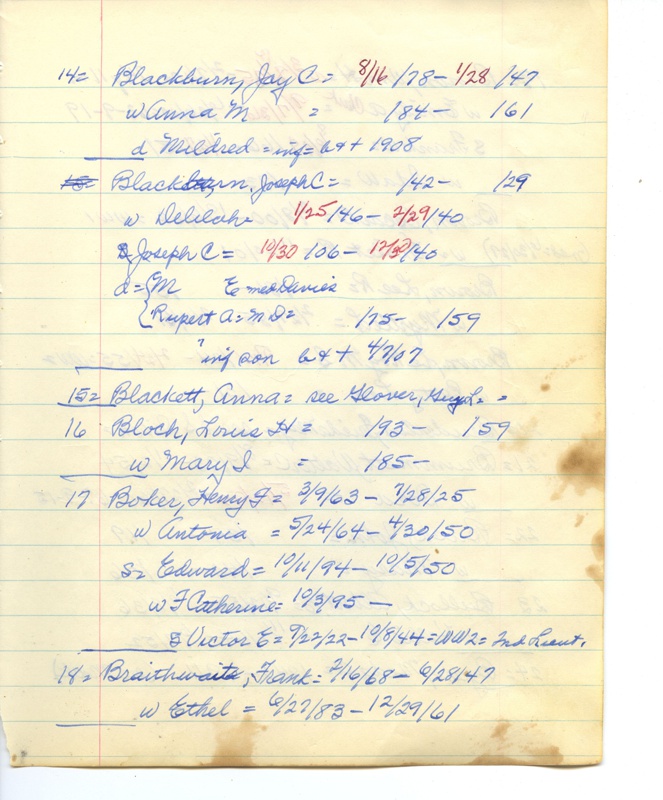 14= Blackburn, Jay C = 8/16/78 - 1/28/47
w Anna M = /84 - /61
d Mildred = inf = b++ 1908
15= Blackburn, Joseph C = /42 - /29
w Delilah = 1/25/46 - 2/29/40
s Joseph C = 10/30/06 - 12/30/40
d = { M E Davies
{ Rupert A = MD = /75 - /59
" inf son b++ 4/7/07
15= Blackett, Anna = see Glover, Guy L. =
16 Bloch, Louis H = /93 - /59
w Mary I = /85 -
17 Boker, Henry F = 3/9/63 - 7/28/25
w Antonia = 5/24/64 - 4/30/50
s = Edward = 10/11/94 - 10/5/50
w F Catherine = 10/3/95 -
s Victor E = 9/22/22 - 10/8/44 = WW2 = 2nd Lieut.
18= Braithwaite, Frank = 2/16/68 - 6/28/47
w Ethel = 6/27/83 - 12/29/61